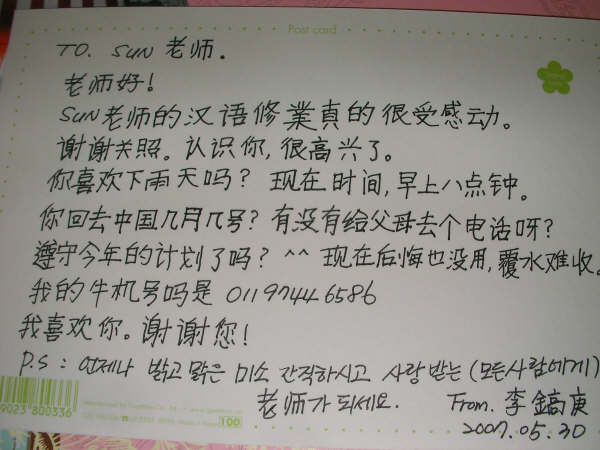 Post card
TO. SUN 老师.
老师好!
SUN老师的汉语修業真的很受感动。
谢谢关照。认识你,很高兴了。
你喜欢下雨天吗? 现在时间,早上八点钟。
你回去中国几月几号? 有没有给父母去个电话呀?
遵守今年的计划了吗? ^^ 现在后悔也没用,覆水难收。
我的牛机号吗是 01197446586
我喜欢你。谢谢您!
P.S : 언제나 밝고 맑은 미소 간직하시고 사랑받는 (모든사람에게)
老师가 되세요. From. 李鎬庚
2007.05.30
9023 800336
100